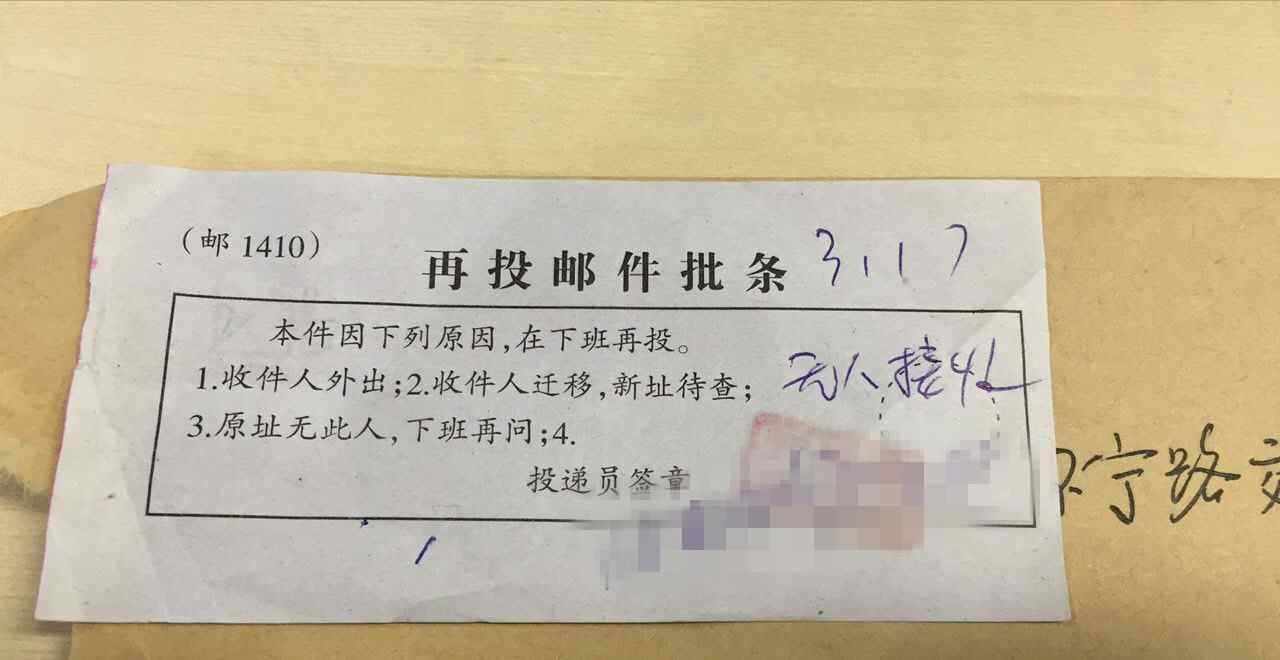 (邮 1410)
再投邮件批条 3.17
本件因下列原因,在下班再投。
1.收件人外出;2.收件人迁移,新址待查; 无人接收
3.原址无此人,下班再问;4.
投递员签章
宁路